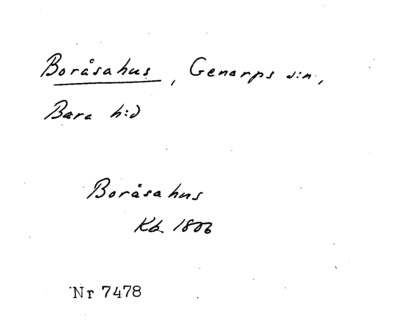 Boråsahus, Genarps s:n,
Bara h:d
Boråsahus
Kb. 1806
Nr 7478